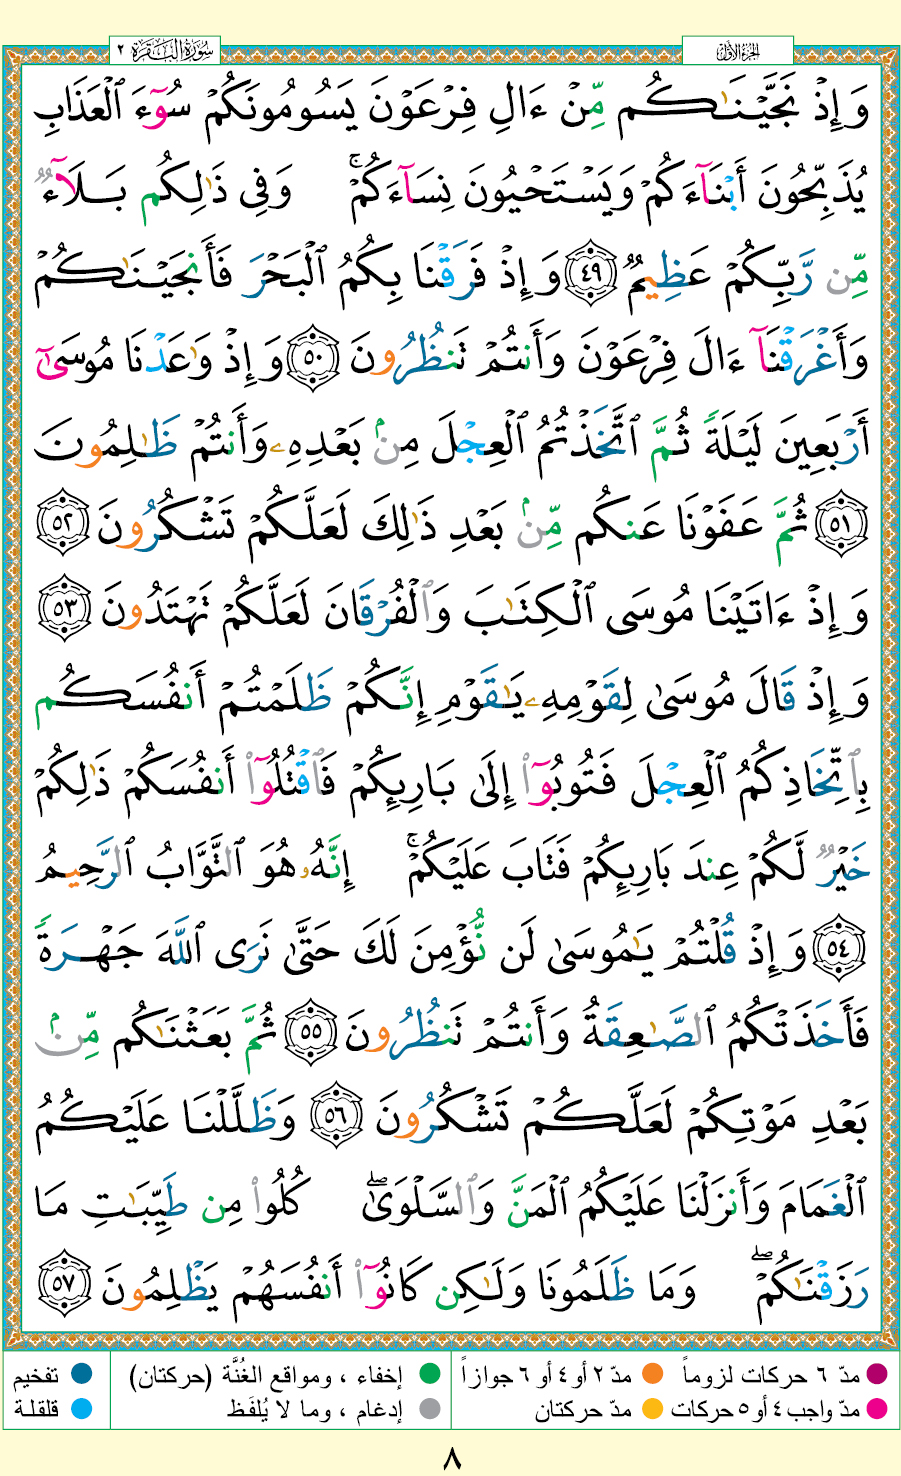 سُورَةُ البَقَرَة ٢
الجزء الأول
وَإِذْ نَجَّيْنَـٰكُم مِّنْ ءَالِ فِرْعَوْنَ يَسُومُونَكُمْ سُوٓءَ ٱلْعَذَابِ
يُذَبِّحُونَ أَبْنَآءَكُمْ وَيَسْتَحْيُونَ نِسَآءَكُمْ ۚ وَفِى ذَٰلِكُم بَلَآءٌ
مِّن رَّبِّكُمْ عَظِيمٌ ٤٩ وَإِذْ فَرَقْنَا بِكُمُ ٱلْبَحْرَ فَأَنجَيْنَـٰكُمْ
وَأَغْرَقْنَآ ءَالَ فِرْعَوْنَ وَأَنتُمْ تَنظُرُونَ ٥٠ وَإِذْ وَٰعَدْنَا مُوسَىٰٓ
أَرْبَعِينَ لَيْلَةً ثُمَّ ٱتَّخَذْتُمُ ٱلْعِجْلَ مِنۢ بَعْدِهِۦ وَأَنتُمْ ظَـٰلِمُونَ
٥١ ثُمَّ عَفَوْنَا عَنكُم مِّنۢ بَعْدِ ذَٰلِكَ لَعَلَّكُمْ تَشْكُرُونَ ٥٢
وَإِذْ ءَاتَيْنَا مُوسَى ٱلْكِتَـٰبَ وَٱلْفُرْقَانَ لَعَلَّكُمْ تَهْتَدُونَ ٥٣
وَإِذْ قَالَ مُوسَىٰ لِقَوْمِهِۦ يَـٰقَوْمِ إِنَّكُمْ ظَلَمْتُمْ أَنفُسَكُم
بِٱتِّخَاذِكُمُ ٱلْعِجْلَ فَتُوبُوٓا۟ إِلَىٰ بَارِئِكُمْ فَٱقْتُلُوٓا۟ أَنفُسَكُمْ ذَٰلِكُمْ
خَيْرٌ لَّكُمْ عِندَ بَارِئِكُمْ فَتَابَ عَلَيْكُمْ ۚ إِنَّهُۥ هُوَ ٱلتَّوَّابُ ٱلرَّحِيمُ
٥٤ وَإِذْ قُلْتُمْ يَـٰمُوسَىٰ لَن نُّؤْمِنَ لَكَ حَتَّىٰ نَرَى ٱللَّهَ جَهْرَةً
فَأَخَذَتْكُمُ ٱلصَّـٰعِقَةُ وَأَنتُمْ تَنظُرُونَ ٥٥ ثُمَّ بَعَثْنَـٰكُم مِّنۢ
بَعْدِ مَوْتِكُمْ لَعَلَّكُمْ تَشْكُرُونَ ٥٦ وَظَلَّلْنَا عَلَيْكُمُ
ٱلْغَمَامَ وَأَنزَلْنَا عَلَيْكُمُ ٱلْمَنَّ وَٱلسَّلْوَىٰ ۖ كُلُوا۟ مِن طَيِّبَـٰتِ مَا
رَزَقْنَـٰكُمْ ۖ وَمَا ظَلَمُونَا وَلَـٰكِن كَانُوٓا۟ أَنفُسَهُمْ يَظْلِمُونَ ٥٧
مدّ ٦ حركات لزوماً مدّ ٢ أو ٤ أو ٦ جوازاً إخفاء ، ومواقع الغُنَّة (حركتان) تفخيم
مدّ واجب ٤ أو ٥ حركات مدّ حركتان إدغام ، وما لا يُلفَظ قلقلة
٨